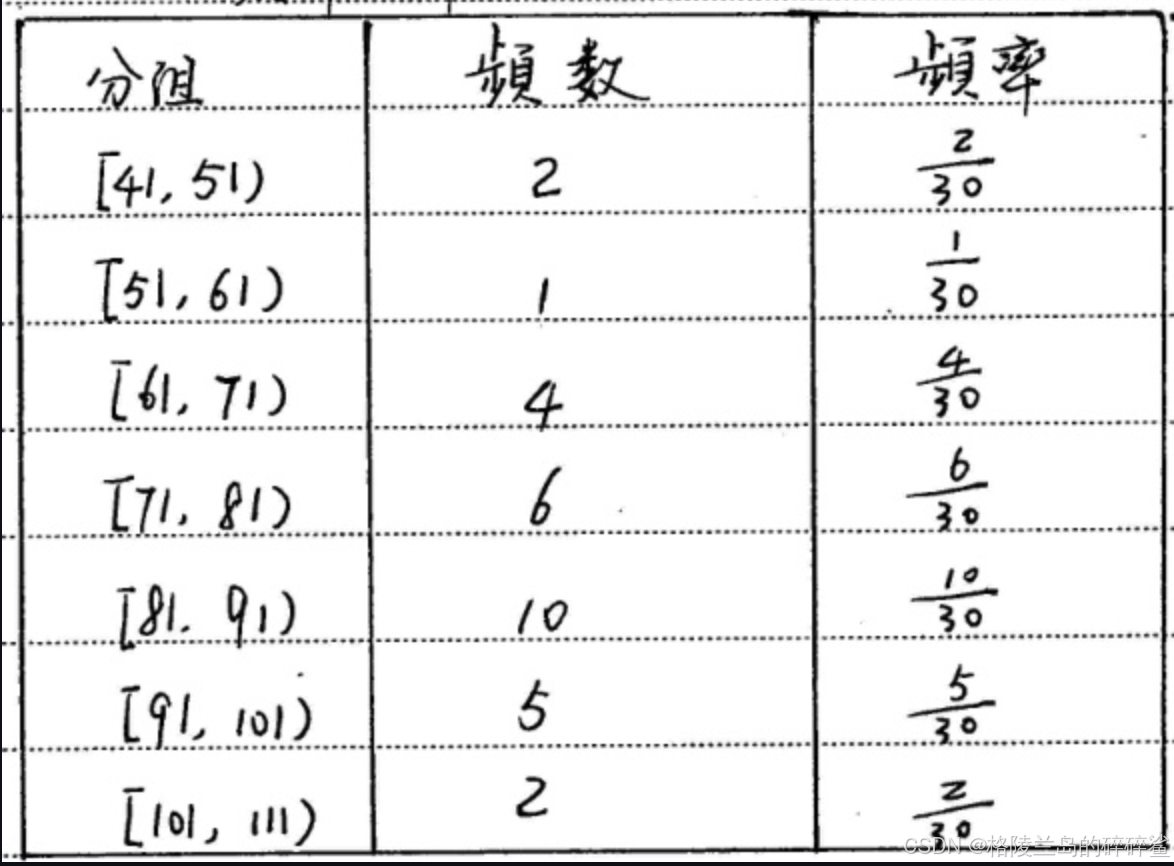 分阻 頻数 頻率
[41, 51) 2 2/30
[51, 61) 1 1/30
[61, 71) 4 4/30
[71, 81) 6 6/30
[81. 91) 10 10/30
[91, 101) 5 5/30
[101, 111) 2 2/30
CSDN @格陵兰岛的碎碎鲨